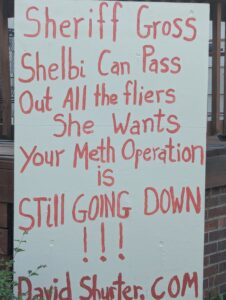 Sheriff Gross
Shelbi Can Pass
Out All the fliers
She Wants
Your Meth Operation
is
STill GOING DOWN
!!!
David Shurter. COM